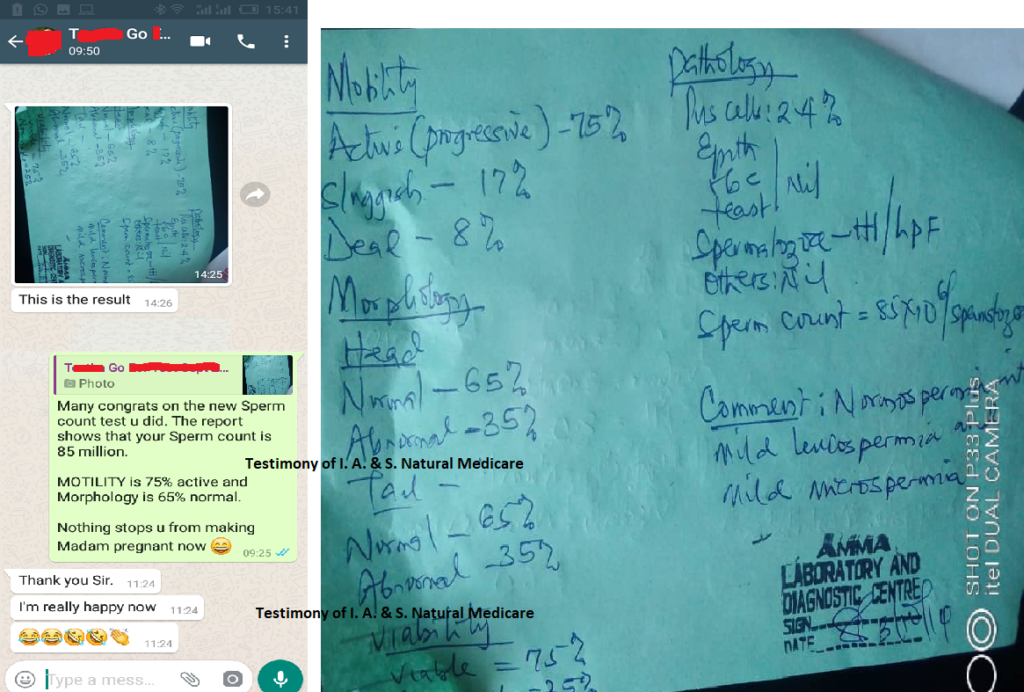 15:41
T Go ...
09:50
14:25
This is the result 14:26
T Go ...
Photo
Many congrats on the new Sperm
count test u did. The report
shows that your Sperm count is
85 million.
MOTILITY is 75% active and
Morphology is 65% normal.
Nothing stops u from making
Madam pregnant now
09:25
Thank you Sir. 11:24
I'm really happy now 11:24
11:24
Type a mess...
Testimony of I. A. & S. Natural Medicare
Testimony of I. A. & S. Natural Medicare
Motility
Active (progressive) - 75%
Sluggish - 17%
Dead - 8%
Morphology
Head
Normal - 65%
Abnormal - 35%
Tail -
Normal - 65%
Abnormal 35%
Viability
Viable = 75%
- 25%
Pathology
Pus cells: 2-4%
Epith
Yeast
Nil
Spermatozoa - ttt/hpf
Others: Nil
Sperm count = 85X10⁶/
Comment:
mild leucospermia and
mild microspermia
AMMA
LABORATORY AND
DIAGNOSTIC CENTRE
SIGN
DATE
SHOT ON P33 Plus
itel DUAL CAMERA